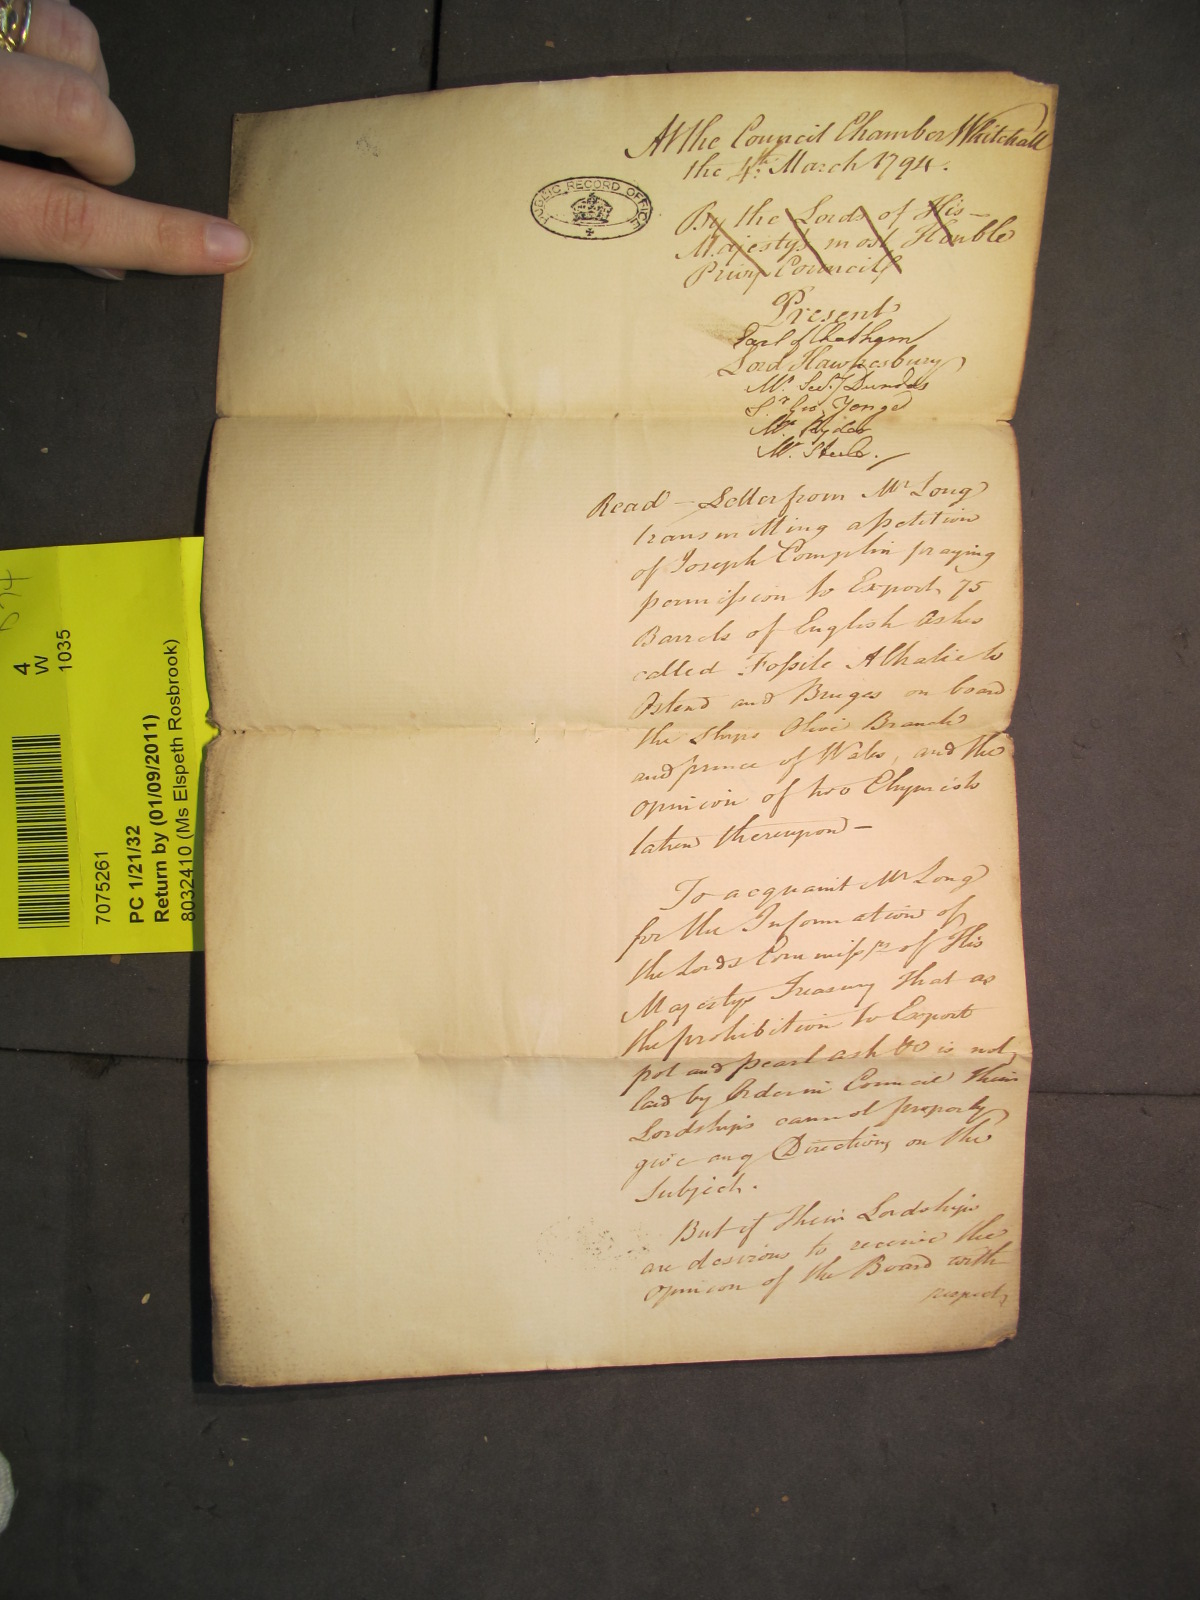 At the Council Chamber Whitehall
the 4th March 1794.
By the Lords of His
Majesty's most Honble
Privy Council
PUBLIC RECORD OFFICE
Present
Earl of Chatham
Lord Hawkesbury
Mr. Secy. Dundas
Sr. Geo. Yonge
Mr. Ryder
Mr. Steele.
Read - Letter from Mr Long
transmitting a petition
of Joseph Complin praying
permission to Export 75
Barrels of English Ashes
called Fossile Alkalie to
Ostend and Bruges on board
the Ships Olive Branch
and prince of Wales, and the
opinion of two Chymists
taken thereupon -
To acquaint Mr Long
for the Information of
the Lords Commissrs of His
Majestys Treasury that as
the prohibition to Export
pot and pearl ash &c is not
laid by Order in Council Their
Lordships cannot properly
give any Directions on the
Subject.
But if Their Lordships
are desirous to receive the
opinion of the Board with
respect
4
W
1035
7075261
PC 1/21/32
Return by (01/09/2011)
8032410 (Ms Elspeth Rosbrook)